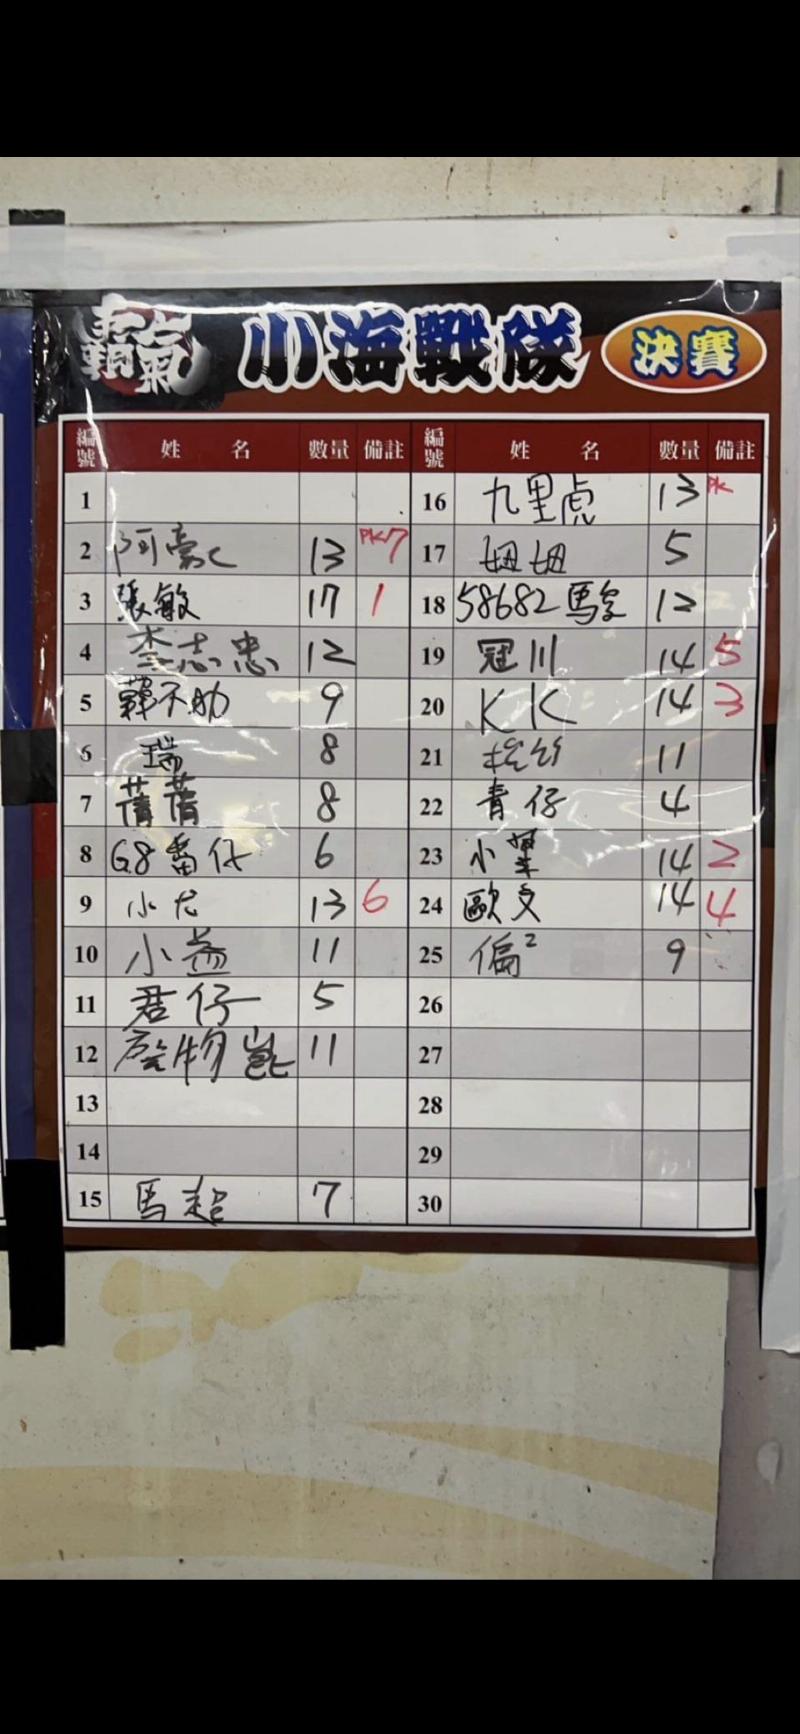 霸氣 小海戰隊 決賽
編號 姓名 數量 備註 編號 姓名 數量 備註
1
2 阿豪C 13 PK7
3 張敏 17 1
4 李志忠 12
5 韓不助 9
6 瑞 8
7 蒨蒨 8
8 G8番仔 6
9 小尤 13 6
10 小益 11
11 君仔 5
12 廢物崑 11
13
14
15 馬超 7
16 九里虎 13 PK
17 妞妞 5
18 58682 12
19 冠川 14 5
20 KK 14 3
21 11
22 青仔 4
23 小 14 2
24 歐文 14 4
25 偏2 9
26
27
28
29
30